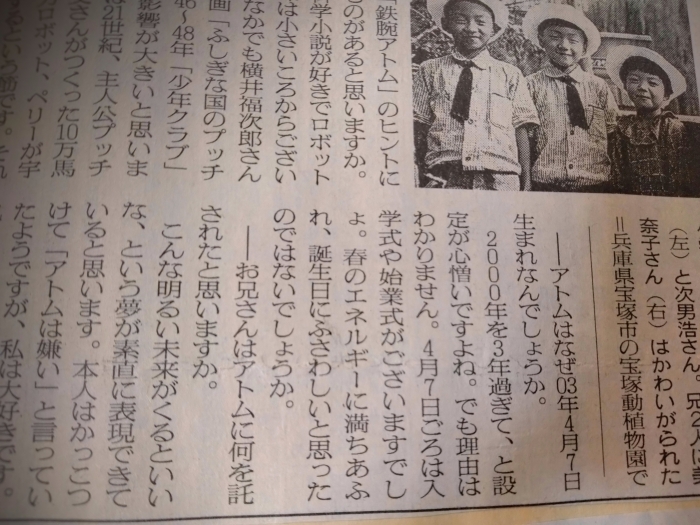 「鉄腕アトム」のヒントに
ものがあると思いますか。
学小説が好きでロボット
は小さいころからござい
なかでも横井福次郎さん
画「ふしぎな国のプッチ
46~48年「少年クラブ」
影響が大きいと思いま
は21世紀、主人公プッチ
さんがつくった10万馬
ロボット、ペリーが宇
るという筋です。それ
(左)と次男浩さん。兄2人に美
奈子さん(右)はかわいがられた
=兵庫県宝塚市の宝塚動植物園で
――アトムはなぜ03年4月7日
生まれなんでしょうか。
2000年を3年過ぎて、と設
定が心憎いですよね。でも理由は
わかりません。4月7日ごろは入
学式や始業式がございますでし
ょ。春のエネルギーに満ちあふ
れ、誕生日にふさわしいと思った
のではないでしょうか。
――お兄さんはアトムに何を託
されたと思いますか。
こんな明るい未来がくるといい
な、という夢が素直に表現できて
いると思います。本人はかっこつ
けて「アトムは嫌い」と言ってい
たようですが、私は大好きです。